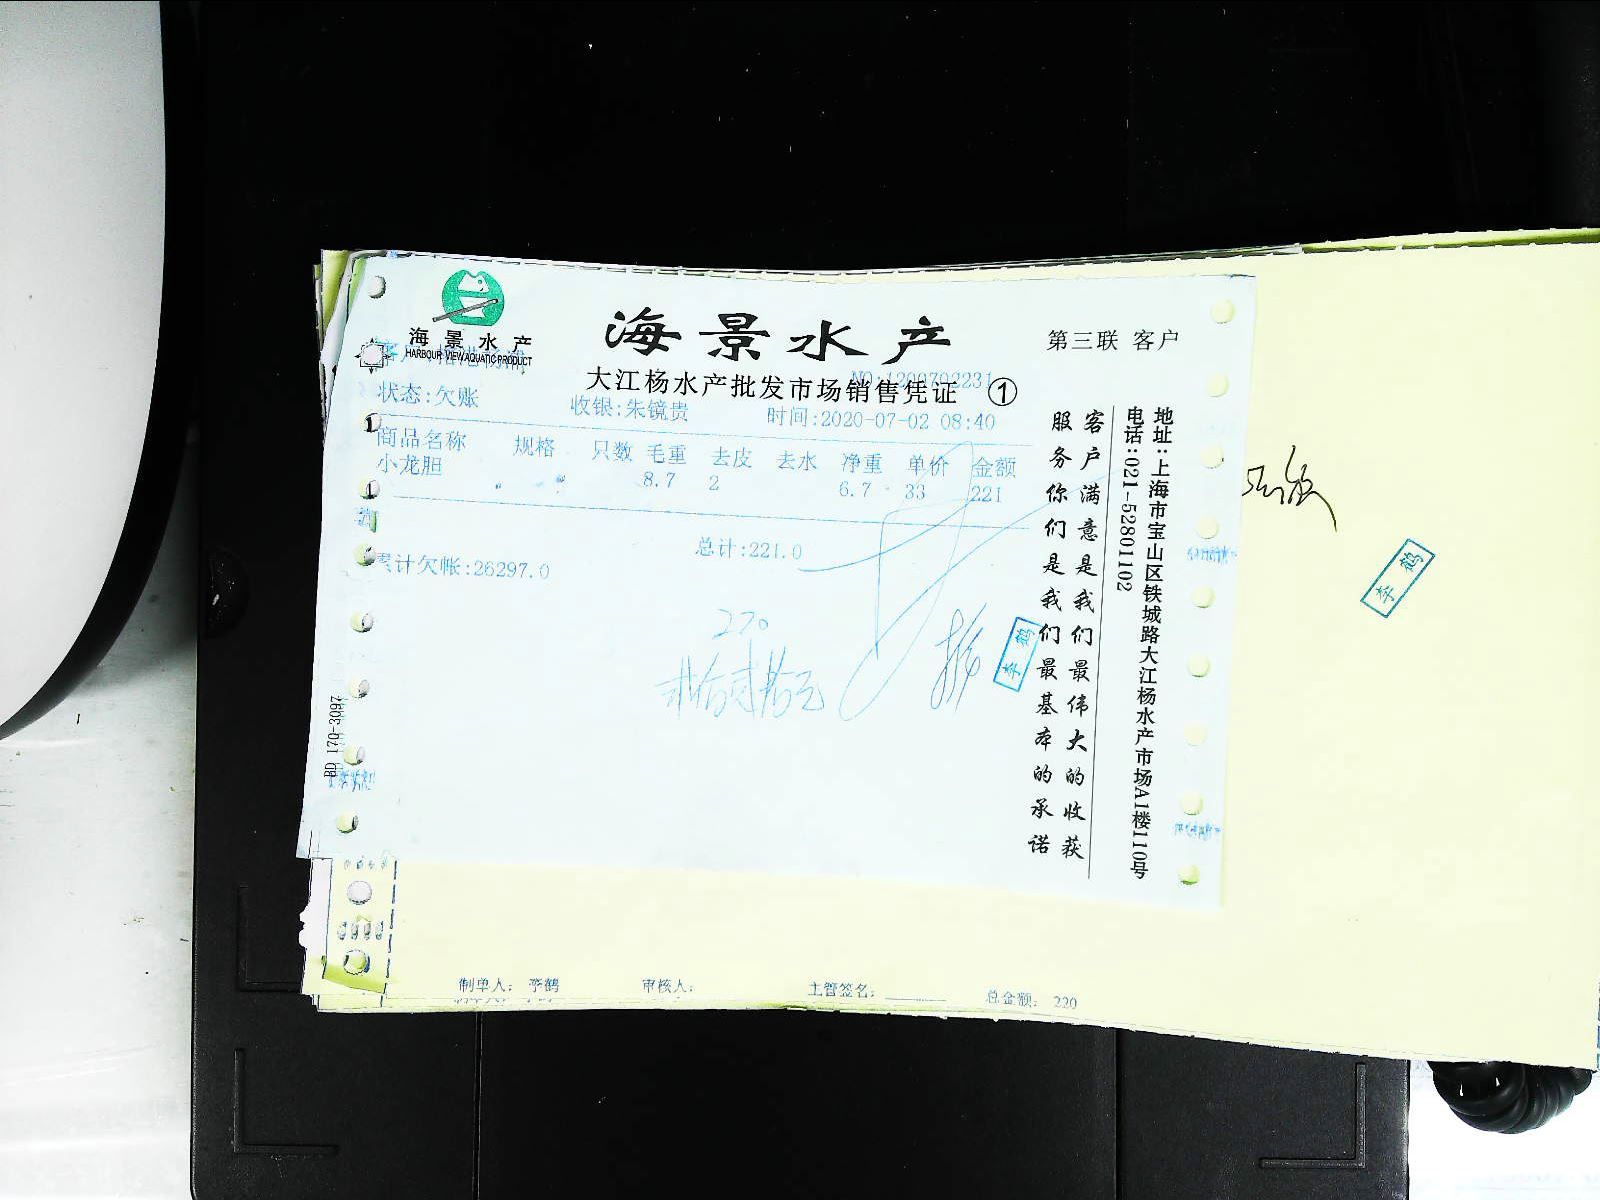 海景水产
HARBOUR VIEW AQUATIC PRODUCT
海景水产
第三联 客户
大江杨水产批发市场销售凭证 ①
NO:1200702231
状态:欠账 收银:朱镜贵 时间:2020-07-02 08:40
商品名称 规格 只数 毛重 去皮 去水 净重 单价 金额
小龙胆 8.7 2 6.7 33 221
总计:221.0
累计欠帐:26297.0
220
贰佰贰拾元
李鹤
客户满意是我们最伟大的收获
服务你们是我们最基本的承诺
地址:上海市宝山区铁城路大江杨水产市场A1楼110号
电话:021-52801102
李鹤
制单人: 李鹤 审核人: 主管签名: 总金额: 220